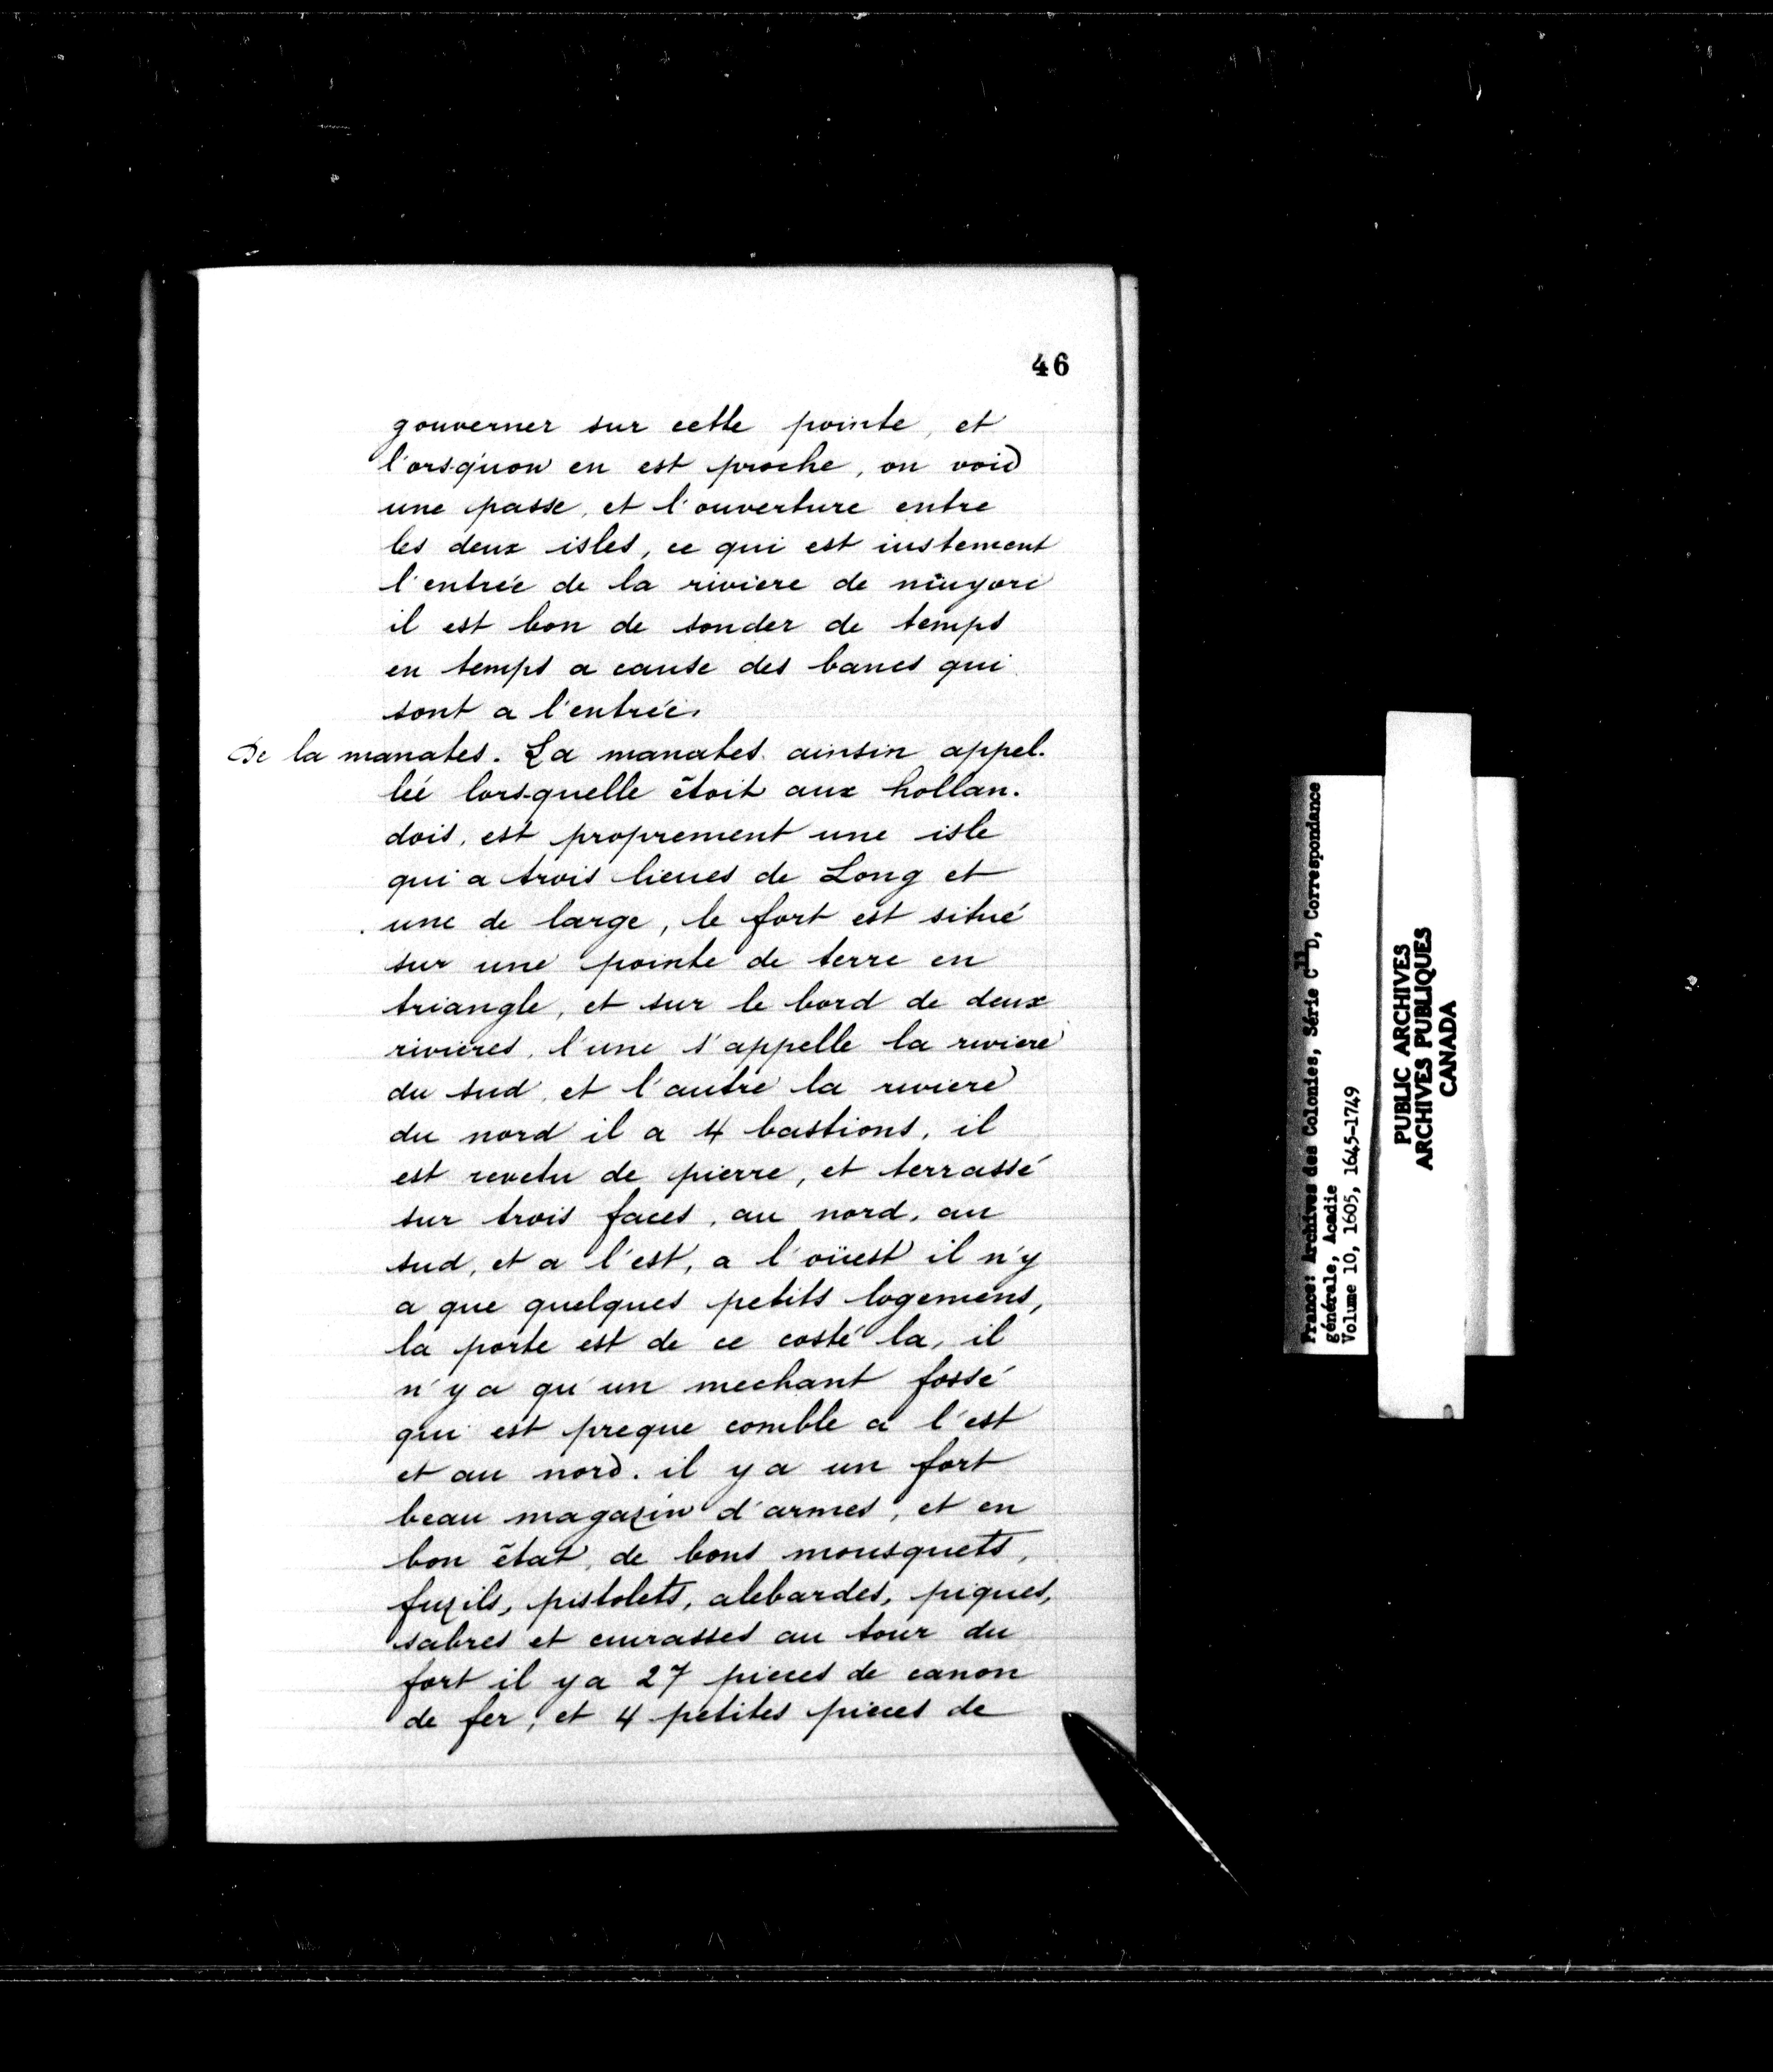 46
gouverner sur cette pointe, et
l'orsqu'on en est proche, on void
une passe, et l'ouverture entre
les deux isles, ce qui est iustement
l'entrée de la riviere de niuyorc
il est bon de sonder de temps
en temps a cause des bancs qui
sont a l'entrée.
De la manates. La manates ainsin appel-
leé lorsquelle étoit aux hollan-
dois, est proprement une isle
qui a trois lieues de Long et
une de large, le fort est situé
sur une pointe de terre en
triangle, et sur le bord de deux
rivieres, l'une s'appelle la riviere
du sud, et l'autre la riviere
du nord il a 4 bastions, il
est revetu de pierre, et terrassé
sur trois faces, au nord, au
sud, et a l'est, a l'oüest il n'y
a que quelques petits logemens,
la porte est de ce costé la, il
n'y a qu'un mechant fossé
qui est preque comble a l'est
et au nord. il y a un fort
beau magazin d'armes, et en
bon état, de bons mousquets,
fuzils, pistolets, alebardes, piques,
sabres et cuirasses au tour du
fort il y a 27 pieces de canon
de fer, et 4 petites pieces de
France: Archives des Colonies, Série C11D, Correspondance
générale, Acadie
Volume 10, 1605, 1645-1749
PUBLIC ARCHIVES
ARCHIVES PUBLIQUES
CANADA